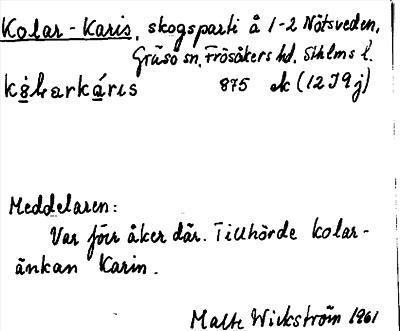 Kolar-Karis, skogsparti å 1-2 Nötsveden,
Gräsö sn, Frösåkers hd, Sthlms l.
875 ek (12 I 9 j)
Meddelaren:
Var förr åker där. Tillhörde kolar-
änkan Karin.
Malte Wickström 1961